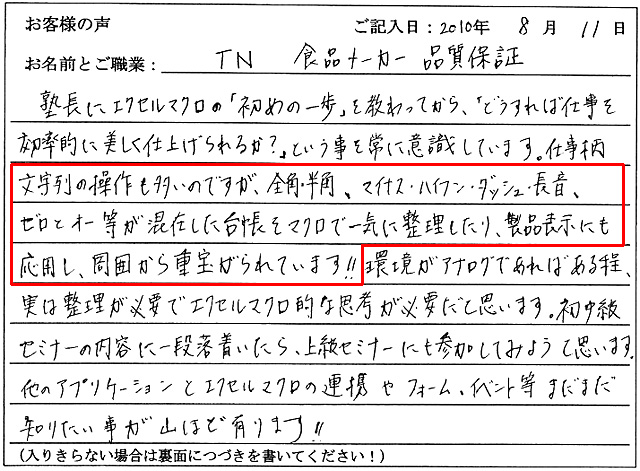 お客様の声 ご記入日：2010年 8月 11日
お名前とご職業： TN 食品メーカー 品質保証
塾長にエクセルマクロの「初めの一歩」を教わってから、「どうすれば仕事を
効率的に美しく仕上げられるか？」という事を常に意識しています。仕事柄
文字列の操作も多いのですが、全角・半角、マイナス・ハイフン・ダッシュ・長音、
ゼロとオー等が混在した台帳をマクロで一気に整理したり、製品表示にも
応用し、周囲から重宝がられています!! 環境がアナログであればある程、
実は整理が必要でエクセルマクロ的な思考が必要だと思います。初中級
セミナーの内容に一段落着いたら、上級セミナーにも参加してみようと思います。
他のアプリケーションとエクセルマクロの連携やフォーム、イベント等まだまだ
知りたい事が山ほど有ります!!
（入りきらない場合は裏面につづきを書いてください！）